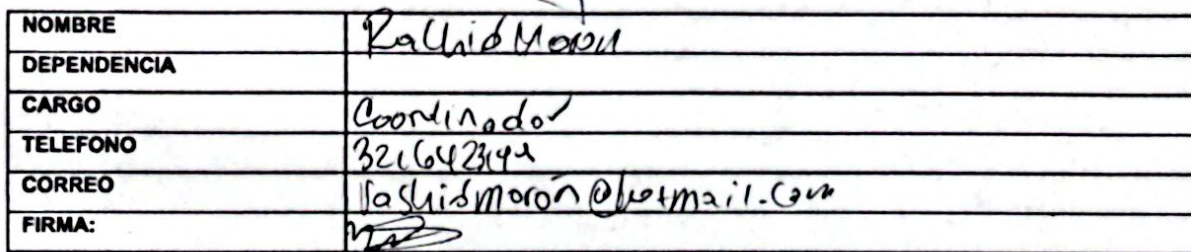 NOMBRE Rashid Moron
DEPENDENCIA
CARGO Coordinador
TELEFONO
CORREO rashidmoron@hotmail.com
FIRMA: